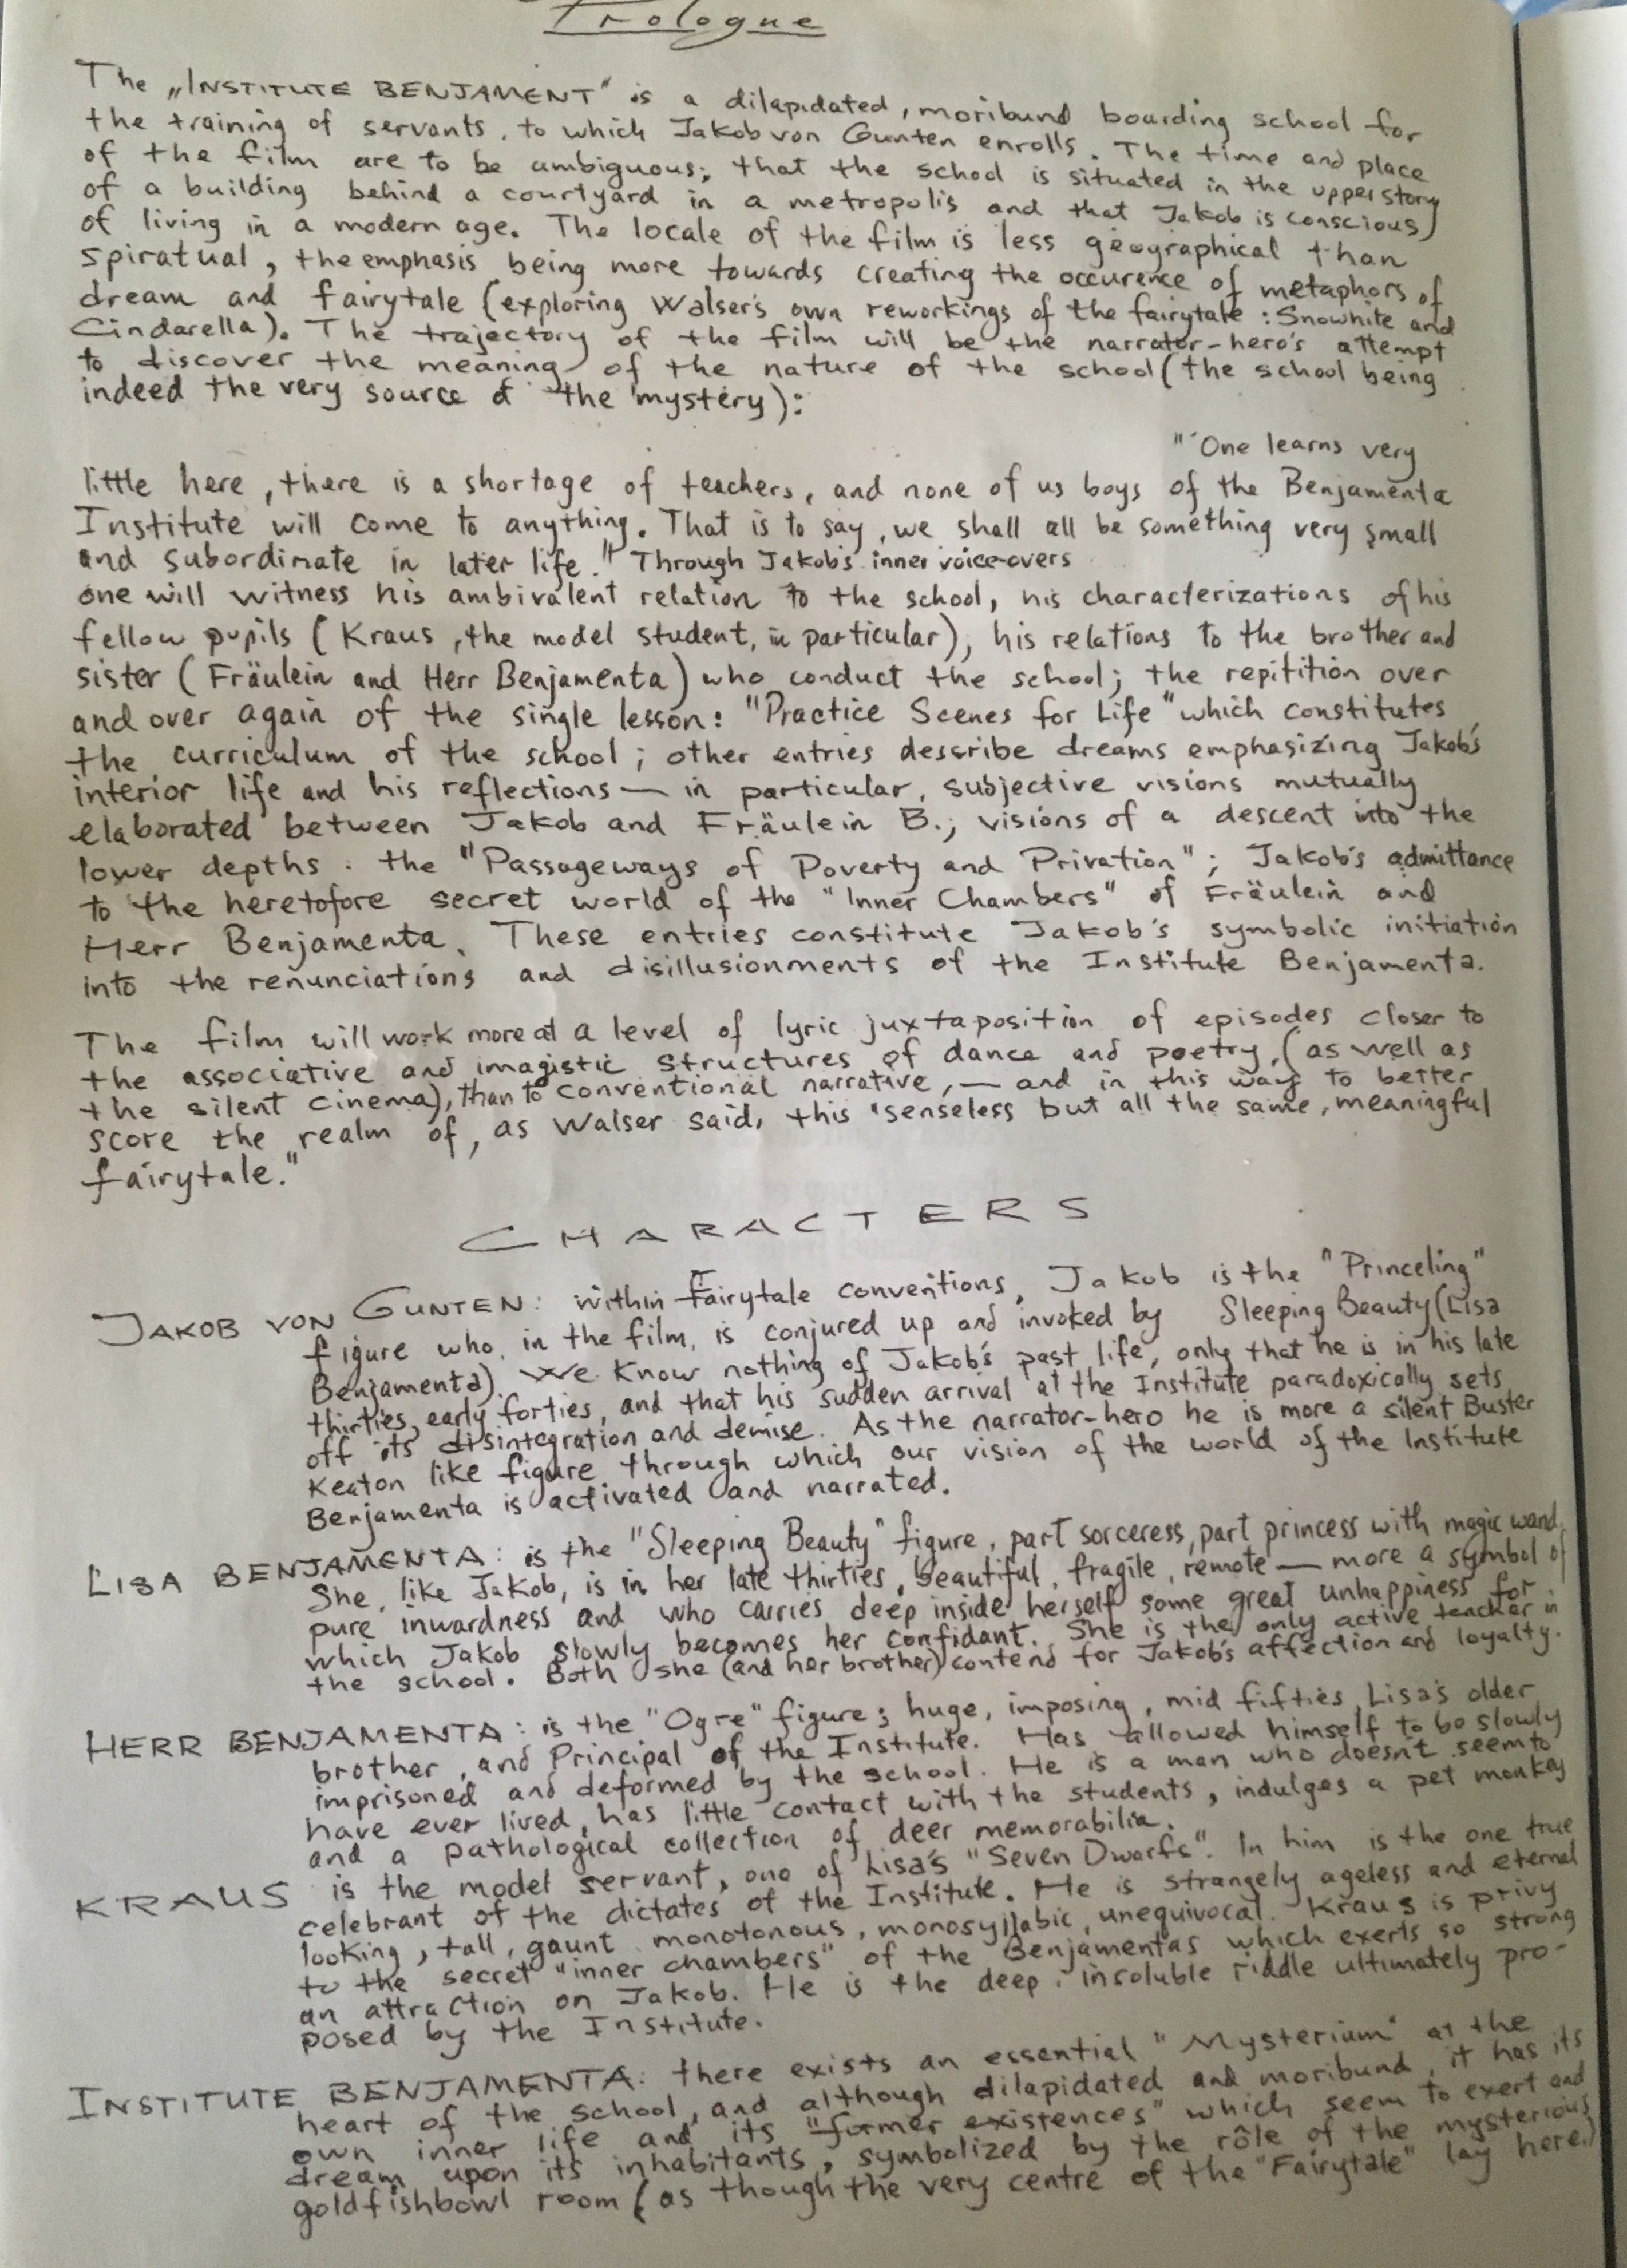 Prologue
The „INSTITUTE BENJAMENT" is a dilapidated, moribund boarding school for
the training of servants, to which Jakob von Gunten enrolls. The time and place
of the film are to be ambiguous; that the school is situated in the upper story
of a building behind a courtyard in a metropolis and that Jakob is conscious
of living in a modern age. The locale of the film is less geographical than
spiratual, the emphasis being more towards creating the occurence of metaphors of
dream and fairytale (exploring Walser's own reworkings of the fairytale: Snowhite and
Cindarella). The trajectory of the film will be the narrator-hero's attempt
to discover the meaning of the nature of the school (the school being
indeed the very source of the mystery):
"One learns very
little here, there is a shortage of teachers, and none of us boys of the Benjamenta
Institute will come to anything. That is to say, we shall all be something very small
and subordinate in later life." Through Jakob's inner voice-overs
one will witness his ambivalent relation to the school, his characterizations of his
fellow pupils (Kraus, the model student, in particular), his relations to the brother and
sister (Fräulein and Herr Benjamenta) who conduct the school; the repitition over
and over again of the single lesson: "Practice Scenes for Life" which constitutes
the curriculum of the school; other entries describe dreams emphasizing Jakob's
interior life and his reflections — in particular, subjective visions mutually
elaborated between Jakob and Fräulein B.; visions of a descent into the
lower depths: the "Passageways of Poverty and Privation"; Jakob's admittance
to the heretofore secret world of the "Inner Chambers" of Fräulein and
Herr Benjamenta. These entries constitute Jakob's symbolic initiation
into the renunciations and disillusionments of the Institute Benjamenta.
The film will work more at a level of lyric juxtaposition of episodes closer to
the associative and imagistic structures of dance and poetry, (as well as
the silent cinema), than to conventional narrative, — and in this way to better
score the realm of, as Walser said, this "senseless but all the same, meaningful
fairytale."
CHARACTERS
JAKOB VON GUNTEN: within Fairytale conventions, Jakob is the "Princeling"
figure who, in the film, is conjured up and invoked by Sleeping Beauty (Lisa
Benjamenta). We know nothing of Jakob's past life, only that he is in his late
thirties, early forties, and that his sudden arrival at the Institute paradoxically sets
off its disintegration and demise. As the narrator-hero he is more a silent Buster
Keaton like figure through which our vision of the world of the Institute
Benjamenta is activated and narrated.
LISA BENJAMENTA: is the "Sleeping Beauty" figure, part sorceress, part princess with magic wand.
She, like Jakob, is in her late thirties, beautiful, fragile, remote — more a symbol of
pure inwardness and who carries deep inside herself some great unhappiness for
which Jakob slowly becomes her confidant. She is the only active teacher in
the school. Both she (and her brother) contend for Jakob's affection and loyalty.
HERR BENJAMENTA: is the "Ogre" figure; huge, imposing, mid fifties, Lisa's older
brother, and Principal of the Institute. Has allowed himself to be slowly
imprisoned and deformed by the school. He is a man who doesn't seem to
have ever lived, has little contact with the students, indulges a pet monkey
and a pathological collection of deer memorabilia.
KRAUS is the model servant, one of Lisa's "Seven Dwarfs". In him is the one true
celebrant of the dictates of the Institute. He is strangely ageless and eternal
looking, tall, gaunt, monotonous, monosyllabic, unequivocal. Kraus is privy
to the secret "inner chambers" of the Benjamentas which exerts so strong
an attraction on Jakob. He is the deep, insoluble riddle ultimately pro-
posed by the Institute.
INSTITUTE BENJAMENTA: there exists an essential "Mysterium" at the
heart of the school, and although dilapidated and moribund, it has its
own inner life and its "former existences" which seem to exert and
dream upon its inhabitants, symbolized by the rôle of the mysterious
goldfishbowl room (as though the very centre of the "Fairytale" lay here.)